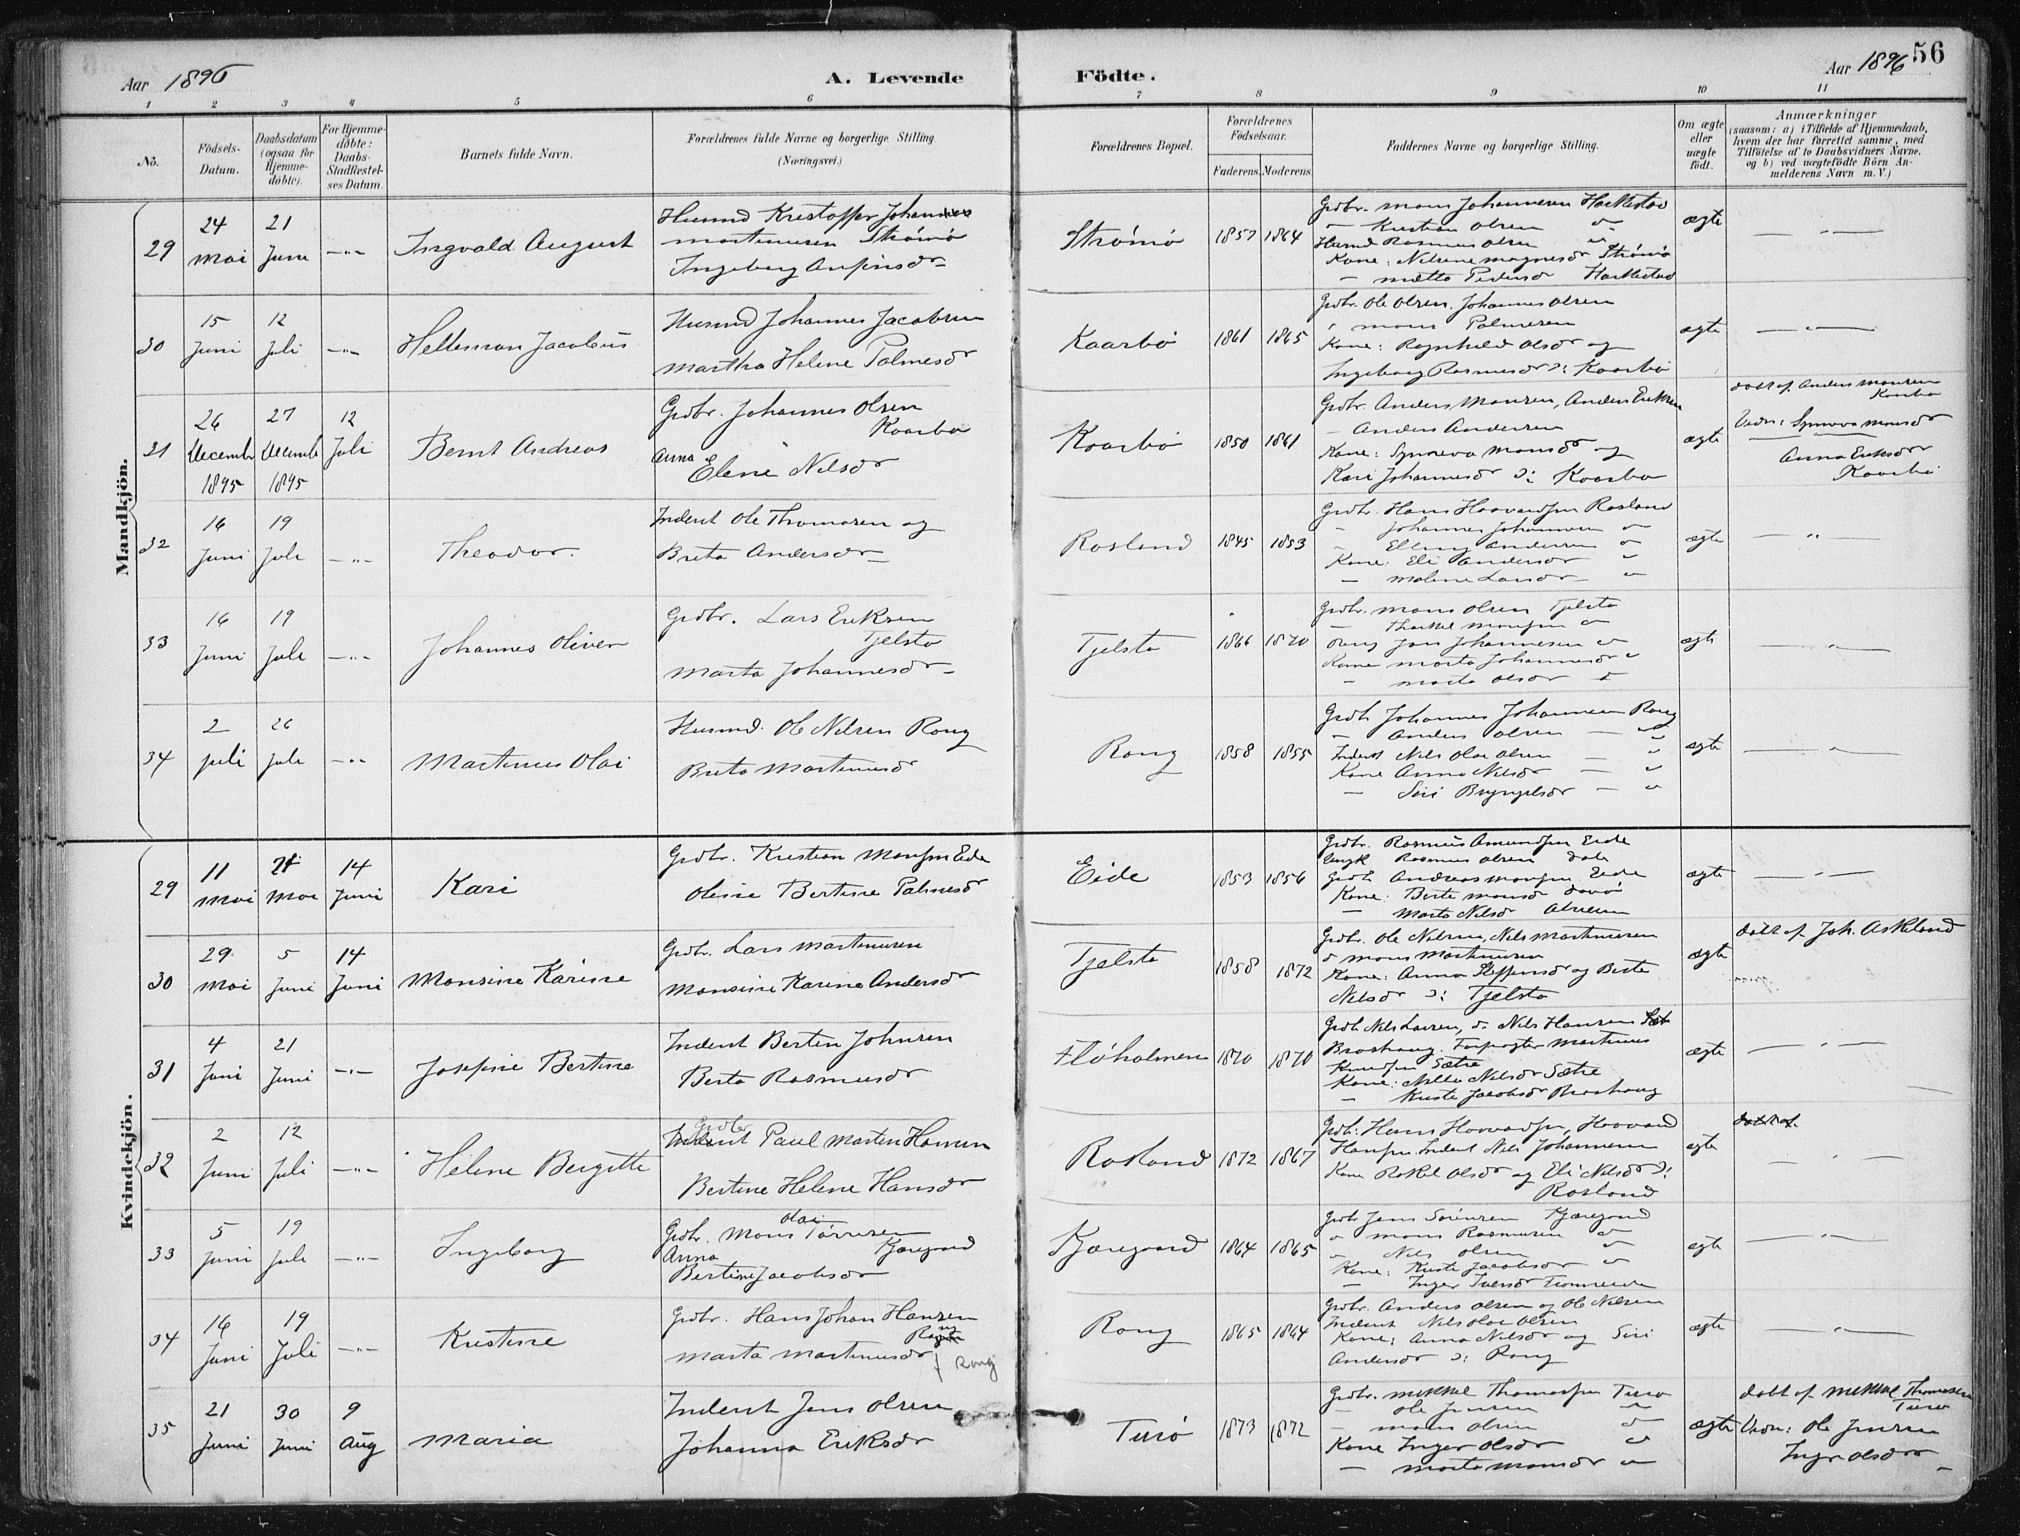 Aar 1896
A. Levende
Födte.
Aar 1896
56
1 2 3 4 5 6 7 8 9 10 11
No.
Födsels-
Datum.
Daabsdatum
(ogsaa for
Hjemme-
døbte).
For Hjemme-
døbte:
Daabs-
Stadfestel-
ses Datum.
Barnets fulde Navn.
Forældrenes fulde Navne og borgerlige Stilling
(Næringsvei.)
Forældrenes Bopæl.
Forældrenes
Födselsaar.
Faderens Moderens
Faddernes Navne og borgerlige Stilling.
Om ægte
eller
uægte
födt.
Anmærkninger
(saasom: a) i Tilfælde af Hjemmedaab,
hvem der har forrettet samme, med
Tilföielse af to Daabsvidners Navne,
og b) ved uægtefödte Börn An-
melderens Navn m. V.)
Mandkjön.
29
24 Mai
21 Juni
Ingvald August
Husmd Kristoffer Johannes
Martinusen Strømø
Ingeborg Anfinsdr
Strømø
1857 1864
Grdbr. Mons Johannesen Haltestad
Kristian Olsen
Husmd Rasmus Olsen
Kone: Nilsine Magnesdr Strømø
Mætta Pedersdr
ægte
30
15 Juni
12 Juli
Helleman Jacobus
Husmd Johannes Jacobsen
Martha Helene Palmesdr
Kaarbø
1861 1865
Grdbr. Ole Olsen, Johannes Olsen
Mons Palmesen
Kone: Ragnhild Olsdr og
Ingeborg Rasmusdr Kaarbø
ægte
31
26 December 1895
27 Decemb 1895
12 Juli
Bernt Andreas
Grdbr. Johannes Olsen
Kaarbø
Anna
Elene Nilsdr
Kaarbø
1850 1861
Grdbr. Anders Monsen, Anders Eriksen
Anders Andersen
Kone: Synneva Monsdr og
Kari Johannesdr Kaarbø
ægte
døbt af Anders Monsen
Kaarbø
Vidn: Synneva Monsdr
Anna Eriksdr
Kaarbø
32
16 Juni
19 Juli
Theodor.
Inderst Ole Thomasen og
Brita Andersdr
Rosland
1845 1853
Grdbr. Hans Haavardsen Rosland
Johannes Johannesen
Elling Andersen
Kone: Eli Andersdr
Malene Larsdr
ægte
33
16 Juni
19 Juli
Johannes Oliver
Grdbr. Lars Eriksen
Tjelsto
Marta Johannesdr
Tjelsto
1866 1870
Grdbr. Mons Olsen Tjelsto
Thorkel Monsen
Ung Jan Johannesen
Kone Marta Johannesdr
Marta Olsdr
ægte
34
2 Juli
26 Juli
Martinus Olai
Husmd. Ole Nilsen Rong
Brita Martinusdr
Rong
1858 1855
Grdbr Johannes Johannesen Rong
Anders Olsen
Inderst Nils Olai Olsen
Kone Anna Nilsdr
Siri Bryngelsdr
ægte
Kvindekjön.
29
11 Mai
Mai
14 Juni
Kari
Grdbr. Kristian Monsen Eide
Oline Bertine Palmesdr
Eide
1853 1856
Grdbr. Rasmus Amundsen Eide
Ungk Rasmus Olsen
Grdbr Andreas Monsen Eide
Kone: Berte Monsdr
Marta Nilsdr
ægte
30
29 Mai
5 Juni
14 Juni
Monsine Karine
Grdbr. Lars Martinusen
Monsine Karine Andersdr
Tjelsto
1858 1872
Grdbr. Ole Nilsen, Nils Martinusen
Mons Martinusen
Kone: Anna Steffensdr og Berte
Nilsdr Tjelsto
ægte
døbt af Joh. Askeland
31
4 Juni
21 Juni
Josefine Bertine
Inderst Bertin Johnsen
Berta Rasmusdr
Fløholmen
1870 1870
Grdbr Nils Larsen, Nils Hansen
Forpagter Martinus
Knudsen Sætre
Kone: Nilsdr Sætre
Kriste Jacobsdr
ægte
32
2 Juni
12 Juli
Helene Bergitte
Grdbr
Inderst Paul Martin Hansen
Bertine Helene Hansdr
Rosland
1872 1867
Grdbr: Hans Haavardsen, Haavard
Hansen Inderst Nils Johannesen
Kone Rakel Olsdr og Eli Nilsdr
Rosland
ægte
døbt af
33
5 Juni
19 Juli
Ingeborg
Olai
Grdbr. Mons Tørresen
Anna Kjæregaard
Bertine Jacobsdr
Kjæregaard
1864 1865
Grdbr Jens Sørensen Kjæregaard
Mons Rasmusen
Nils Olsen
Kone: Kriste Jacobsdr
Inger Iversdr
ægte
34
16 Juni
19 Juli
Kristine
Grdbr. Hans Johan Hansen
Marta Martinusdr
Rong
Rong
1865 1864
Grdbr. Anders Olsen og Ole Nilsen
Inderst Nils Olai Olsen
Kone: Anna Nilsdr og Siri
Andersdr Rong
ægte
35
21 Juni
30 Juni
9 Aug
Maria
Inderst Jens Olsen
Johanna Eriksdr
Turø
1873 1872
Grdbr. Mikkel Thomassen Turø
Ole Jensen
Mons Olsen
Kone Inger Olsdr
Marta Monsdr
ægte
døbt af Mikkel Thomesen
Turø
Vidn: Ole Jensen
Inger Olsdr